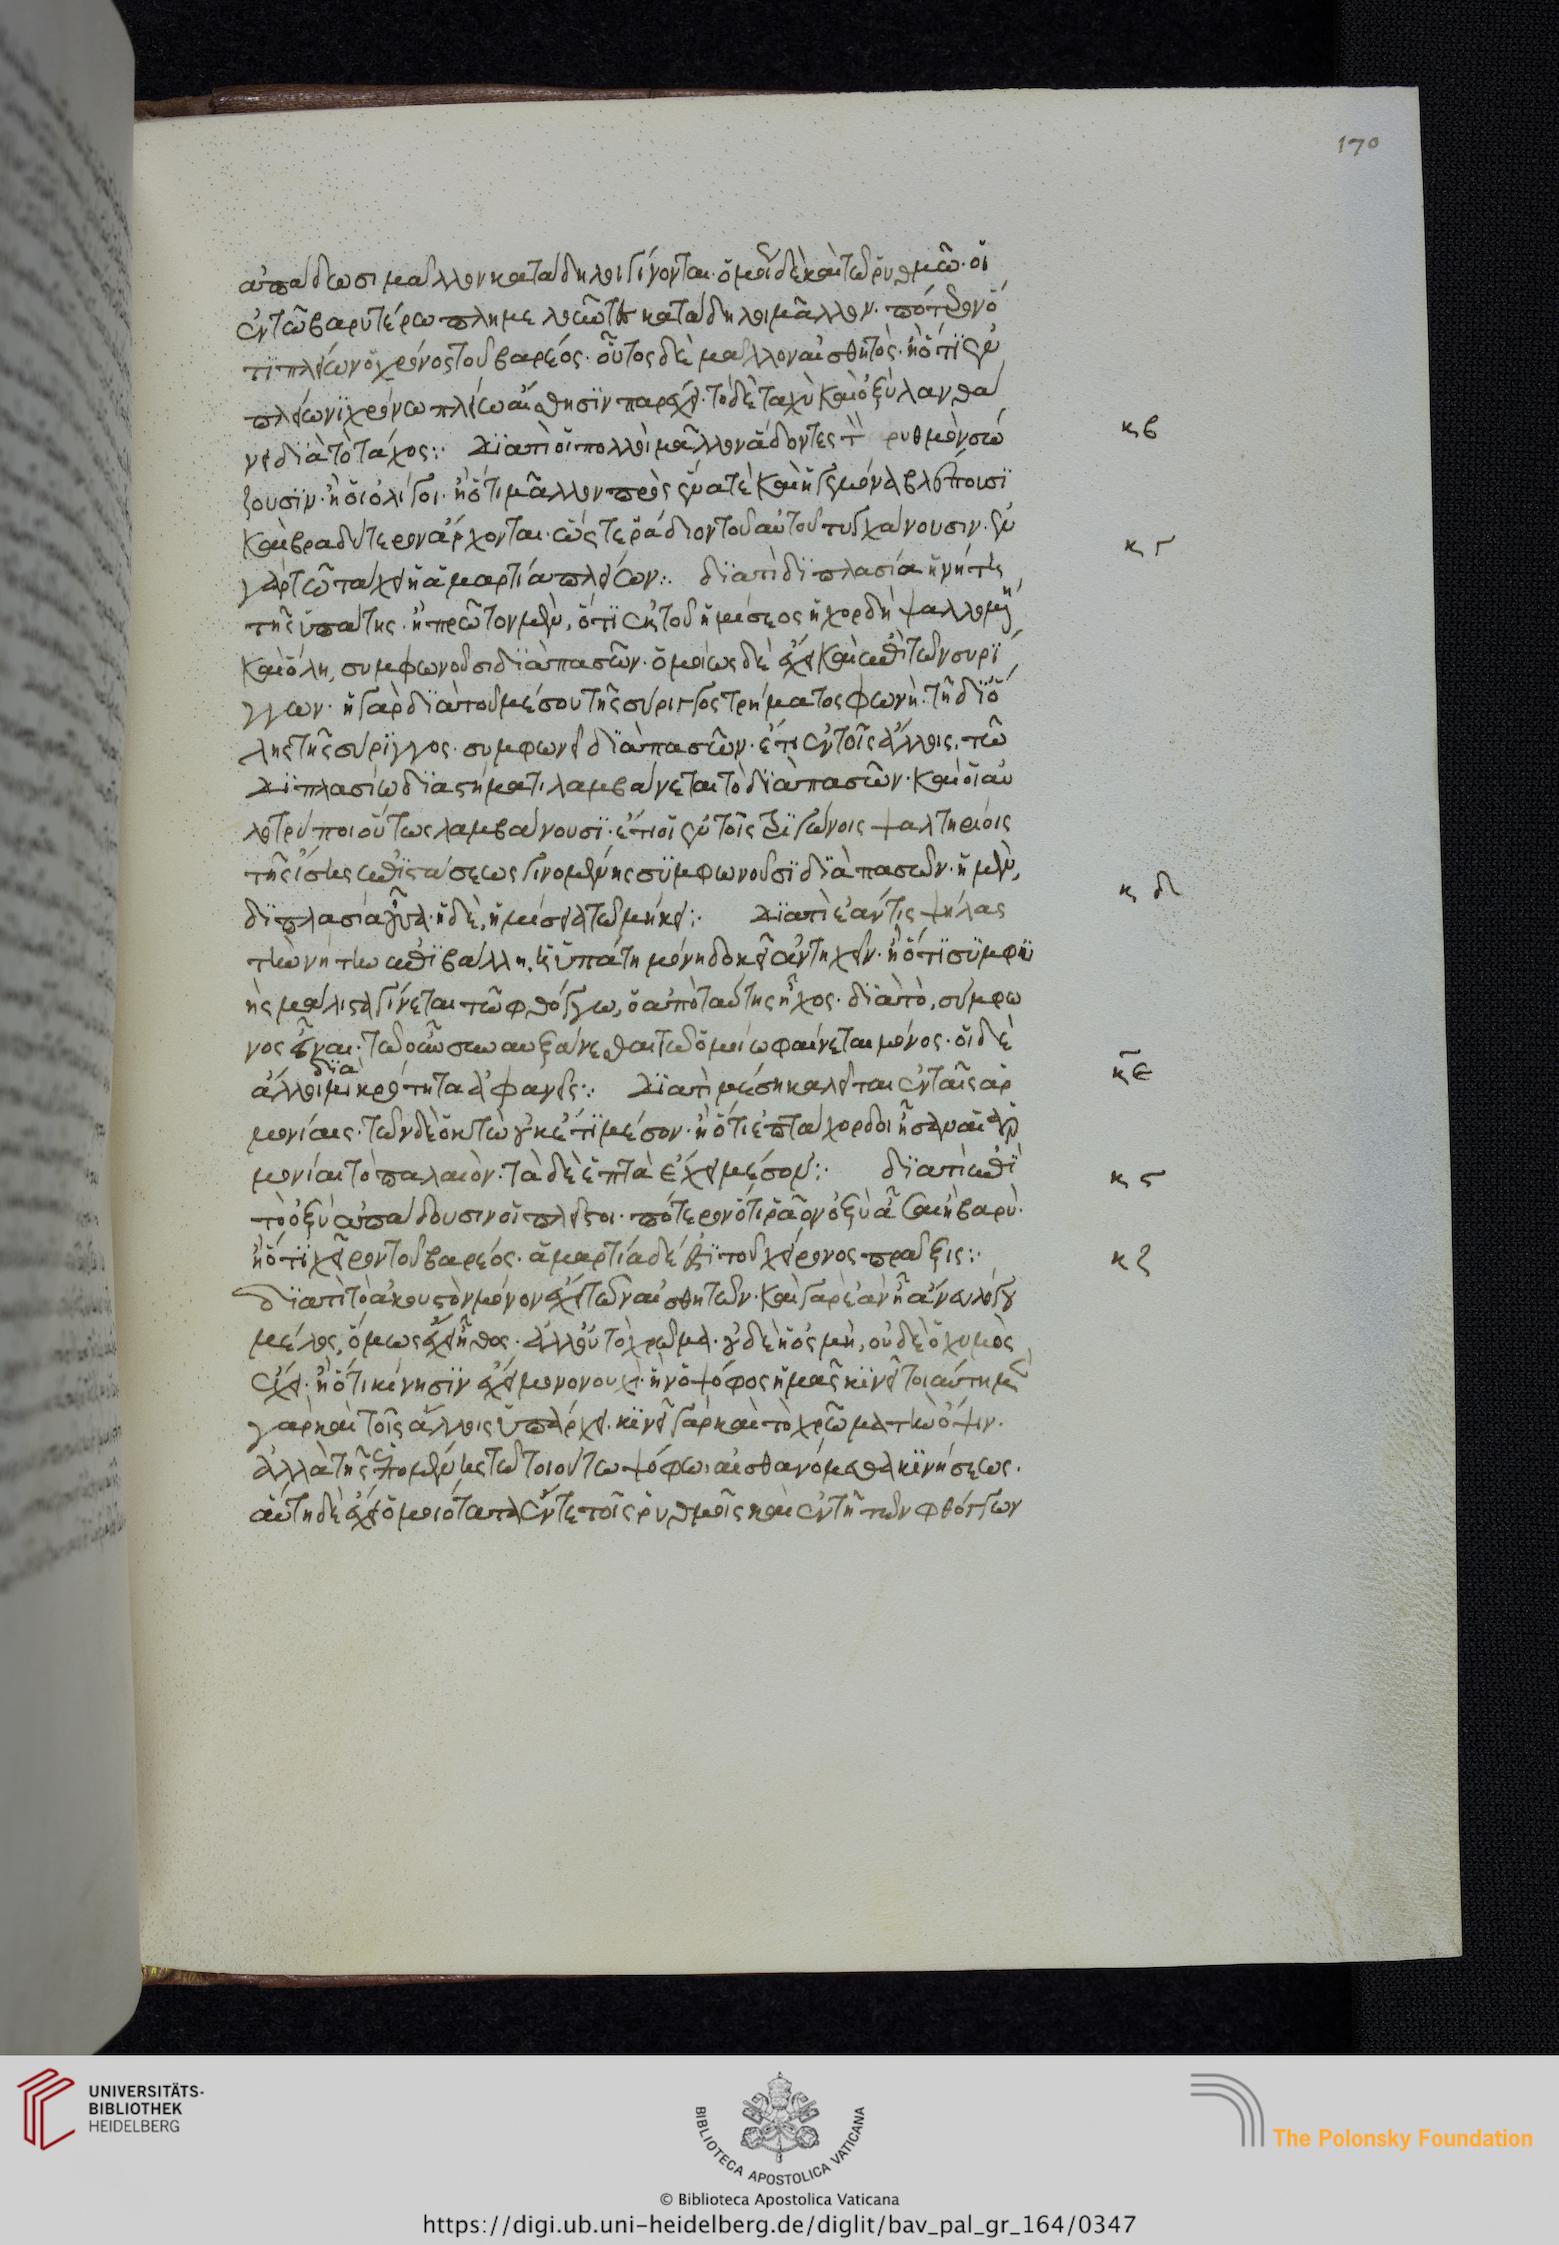 170
ἀπάδωσι μᾶλλον κατάδηλοι γίνονται· ὁμοίως δὲ καὶ τῶ ῥυθμῶ· οἱ
ἐν τῶ βαρυτέρω πλημμελοῦντες κατάδηλοι μᾶλλον· πότερον ὅ
τι πλείων ὁ χρόνος τοῦ βαρέος· οὗτος δὲ μᾶλλον αἰσθητός· ἢ ὅτι ἐν
πλείωνι χρόνω πλείω αἴσθησιν παρέχει· τὸ δὲ ταχὺ καὶ ὀξὺ λανθά
νει διὰ τὸ τάχος:· διατί οἱ πολλοὶ μᾶλλον ἄδοντες τὸν ῥυθμὸν σώ
κβ
ζουσιν· ἢ οἱ ὀλίγοι· ἢ ὅτι μᾶλλον πρὸς ἕνα τὲ καὶ ἡγεμόνα βλέπουσι
καὶ βραδύτερον ἄρχονται· ὥς τε ῥάδιον τοῦ αὐτοῦ τυγχάνουσιν· ἐν
κγ
γὰρ τῶ τάχει ἡ ἁμαρτία πλείων:· διατί διπλασία ἡ νήτη
τῆς ὑπάτης· ἢ πρῶτον μὲν, ὅτι ἐκ τοῦ ἡμίσεος ἡ χορδὴ ψαλλομένη
καὶ ὅλη, συμφωνοῦσι διὰ πασῶν· ὁμοίως δὲ ἔχει καὶ ἐπὶ τῶν συρί
γγων· ἡ γὰρ διὰ τοῦ μέσου τῆς σύριγγος τρήματος φωνὴ· τῆ δι' ὅ
λης τῆς σύριγγος· συμφωνεῖ διὰ πασῶν· ἔτι ἐν τοῖς ἄλλοις· τῶ
διπλασίω διαστήματι λαμβάνεται τὸ διὰ πασῶν· καὶ οἱ αὐ
λοτρύποι οὕτως λαμβάνουσι· ἔτι οἱ ἐν τοῖς τριγώνοις ψαλτηρίοις
τῆς ἴσης ἐπιτάσεως γινομένης συμφωνοῦσι διὰ πασῶν· ἡ μὲν,
κδ
διπλασία οὖσα· ἡ δὲ, ἡμίσεια τῶ μήκει:· διατί ἐάν τις ψήλας
τὴν νήτην ἐπιβάλλη, ἡ ὑπάτη μόνη δοκεῖ ἀντηχεῖν· ἢ ὅτι συμφυ
ὴς μάλιστα γίνεται τῶ φθόγγω, ὁ ἀπὸ ταύτης ἦχος· διὰ τὸ, σύμφω
νος εἶναι· τῶ συναυξάνεσθαι τῶ ὁμοίω φαίνεται μόνος· οἱ δὲ
ἄλλοι διὰ μικρότητα ἀφανεῖς:· διατί μέση καλεῖται ἐν ταῖς ἁρ
κε
μονίαις· τῶν δὲ ὀκτὼ οὐκ ἔστι μέσον· ἢ ὅτι ἑπτάχορδοι ἦσαν αἱ ἁρ
μονίαι τὸ παλαιὸν· τὰ δὲ ἑπτὰ ἔχει μέσον:· διατί ἐπὶ
κϛ
τὸ ὀξὺ ἀπάδουσιν οἱ πλεῖστοι· πότερον ὅτι ῥᾶον ὀξὺ ἆσαι ἢ βαρὺ·
ἢ ὅτι χεῖρον τοῦ βαρέος· ἁμαρτία δέ ἐστι τοῦ χείρονος πρᾶξις:·
κζ
διατί τὸ ἀκουστὸν μόνον ἔχει τῶν αἰσθητῶν· καὶ γὰρ ἐὰν ἦ ἄνευ λόγου
μέλος, ὅμως ἔχει ἦθος· ἀλλ' οὐ τὸ χρῶμα· οὐδὲ ἡ ὀσμὴ, οὐδὲ ὁ χυμὸς
ἔχει· ἢ ὅτι κίνησιν ἔχει μονονουχὶ· ἣν ὁ ψόφος ἡμᾶς κινεῖ τοιαύτη μὲν
γὰρ καὶ τοῖς ἄλλοις ὑπάρχει· κινεῖ γὰρ καὶ τὸ χρῶμα τὴν ὄψιν·
ἀλλὰ τῆς ἑπομένης τῶ τοιούτω ψόφω· αἰσθανόμεθα κινήσεως·
αὕτη δὲ ἔχει ὁμοιότητα ἔν τε τοῖς ῥυθμοῖς καὶ ἐν τῆ τῶν φθόγγων
UNIVERSITÄTS-
BIBLIOTHEK
HEIDELBERG
BIBLIOTECA APOSTOLICA VATICANA
The Polonsky Foundation
© Biblioteca Apostolica Vaticana
https://digi.ub.uni-heidelberg.de/diglit/bav_pal_gr_164/0347